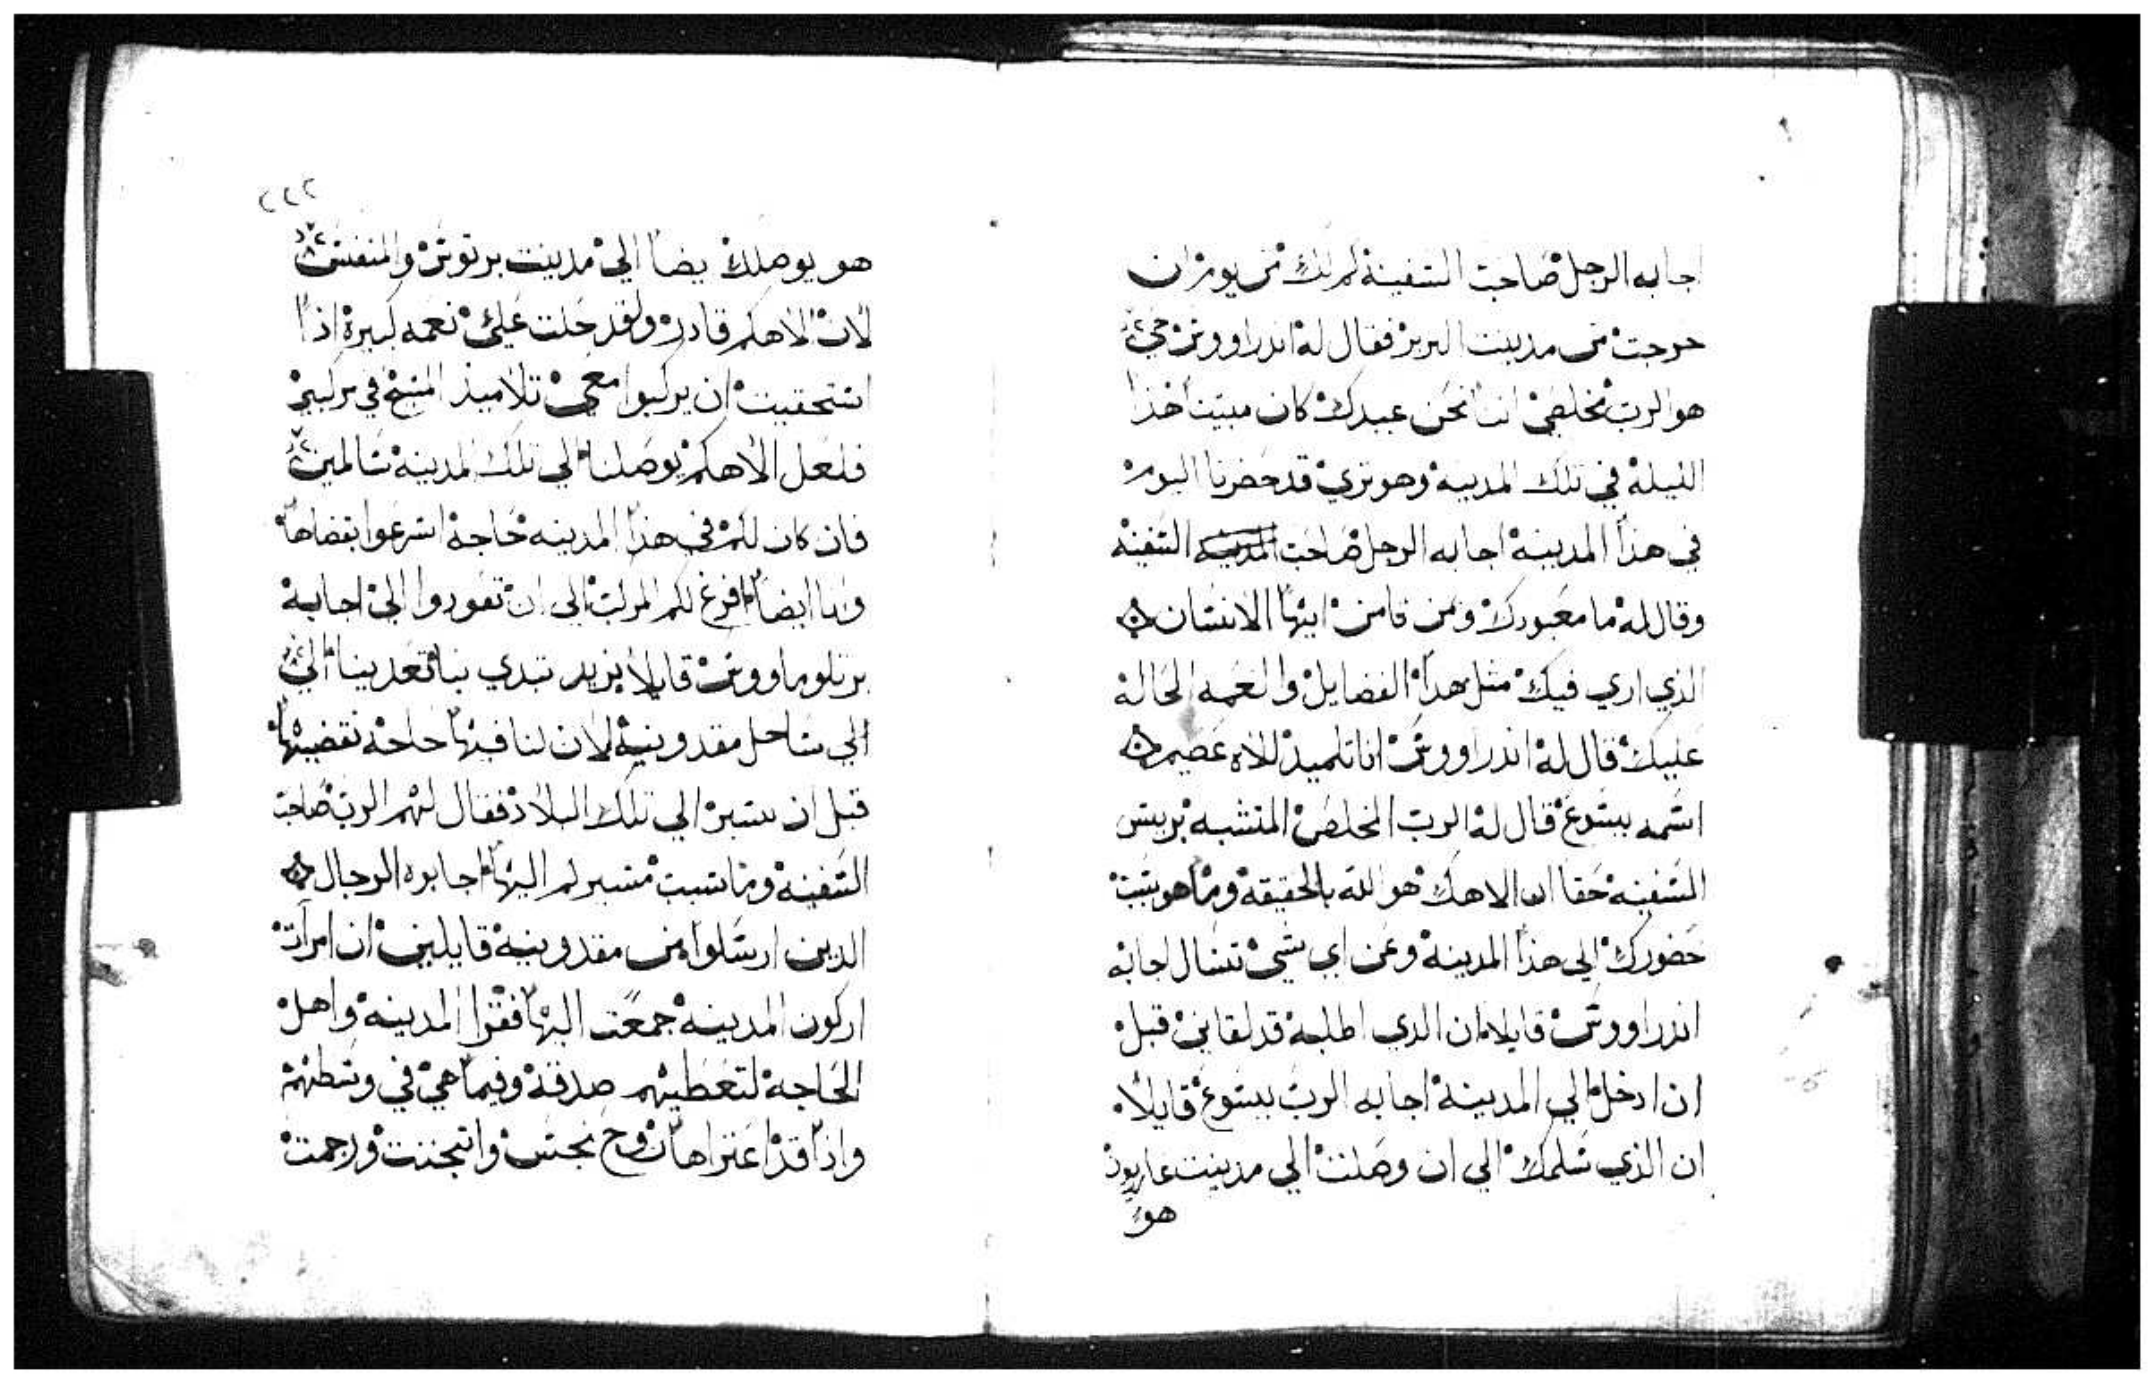 اجابه الرجل صاحب السفينة لم لك من يوم ان
خرجت من مدينت البربر فقال له اندراووس حي
هو الرب مخلصي اننا نحن عبيدك كان مبيتنا هذا
الليلة في تلك المدينه وهو تري قد حضرنا اليوم
في هذا المدينة اجابه الرجل صاحب المدينه السفينه
وقال له ما معبودك ومن قامن ايها الانسان
الذي اري فيك مثل هذا الفضايل والنعمه الحالة
عليك قال له اندراووس انا تلميذ للاه عضيم
اسمه يسوع قال له الرب المخلص المتشبه بريس
السفينه حقا ان الاهك هو الله بالحقيقة وما هو سبب
حضورك الي هذا المدينة وعن اي شي تسال اجابه
اندراووس قايلا ان الدي اطلبه قد لقاني قبل
ان ادخل الي المدينة اجابه الرب يسوع قايلا
ان الذي سلمك الي ان وصلت الي مدينت عاريون
هو
٢٢٢
هو يوصلك يضا الي مدينت برتوس والمنفس
لان الاهكم قادر ولقد حلت علي نعمه كبيرة اذا
استحقيت ان يركبوا معي تلاميذ المسيح في مركبي
فلعل الاهكم يوصلنا الي تلك المدينة سالمين
فان كان لكم في هذا المدينه حاجة اسرعوا بقضاها
وانا ايضا افرغ لكم المركب الي ان تعودوا الي اجابه
برتلوماووس قايلا نريد تبدي بنا تعدينا الي
الي ساحل مقدونية لان لنا فيها حاجة نقضيها
قبل ان نسير الي تلك البلاد فقال لهم الرب صاحب
السفينة وما سبب مسيركم اليها اجابوه الرجال
الدين ارسلوا من مقدونية قايلين ان امرات
اركون المدينه جمعت اليها فقرا المدينة واهل
الحاجة لتعطيهم صدقة وفيما هي في وسطهم
واذا قد اعتراها روح نجس واتجننت ورجمت